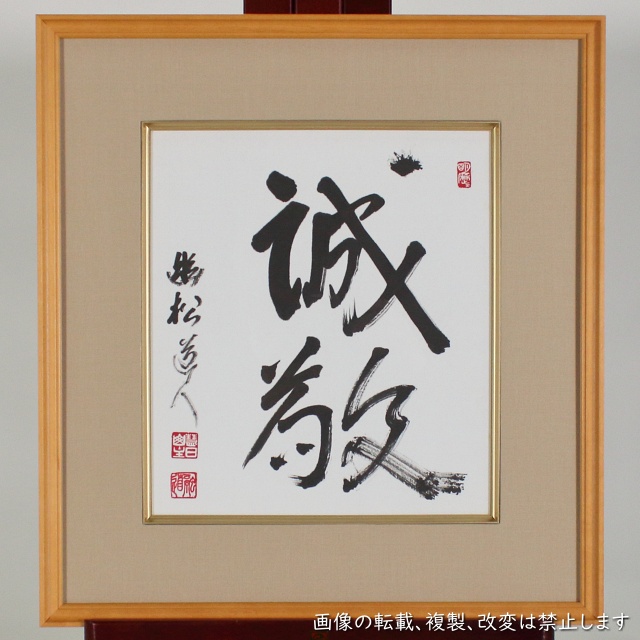 誠
敬
松道人
画像の転載、複製、改変は禁止します